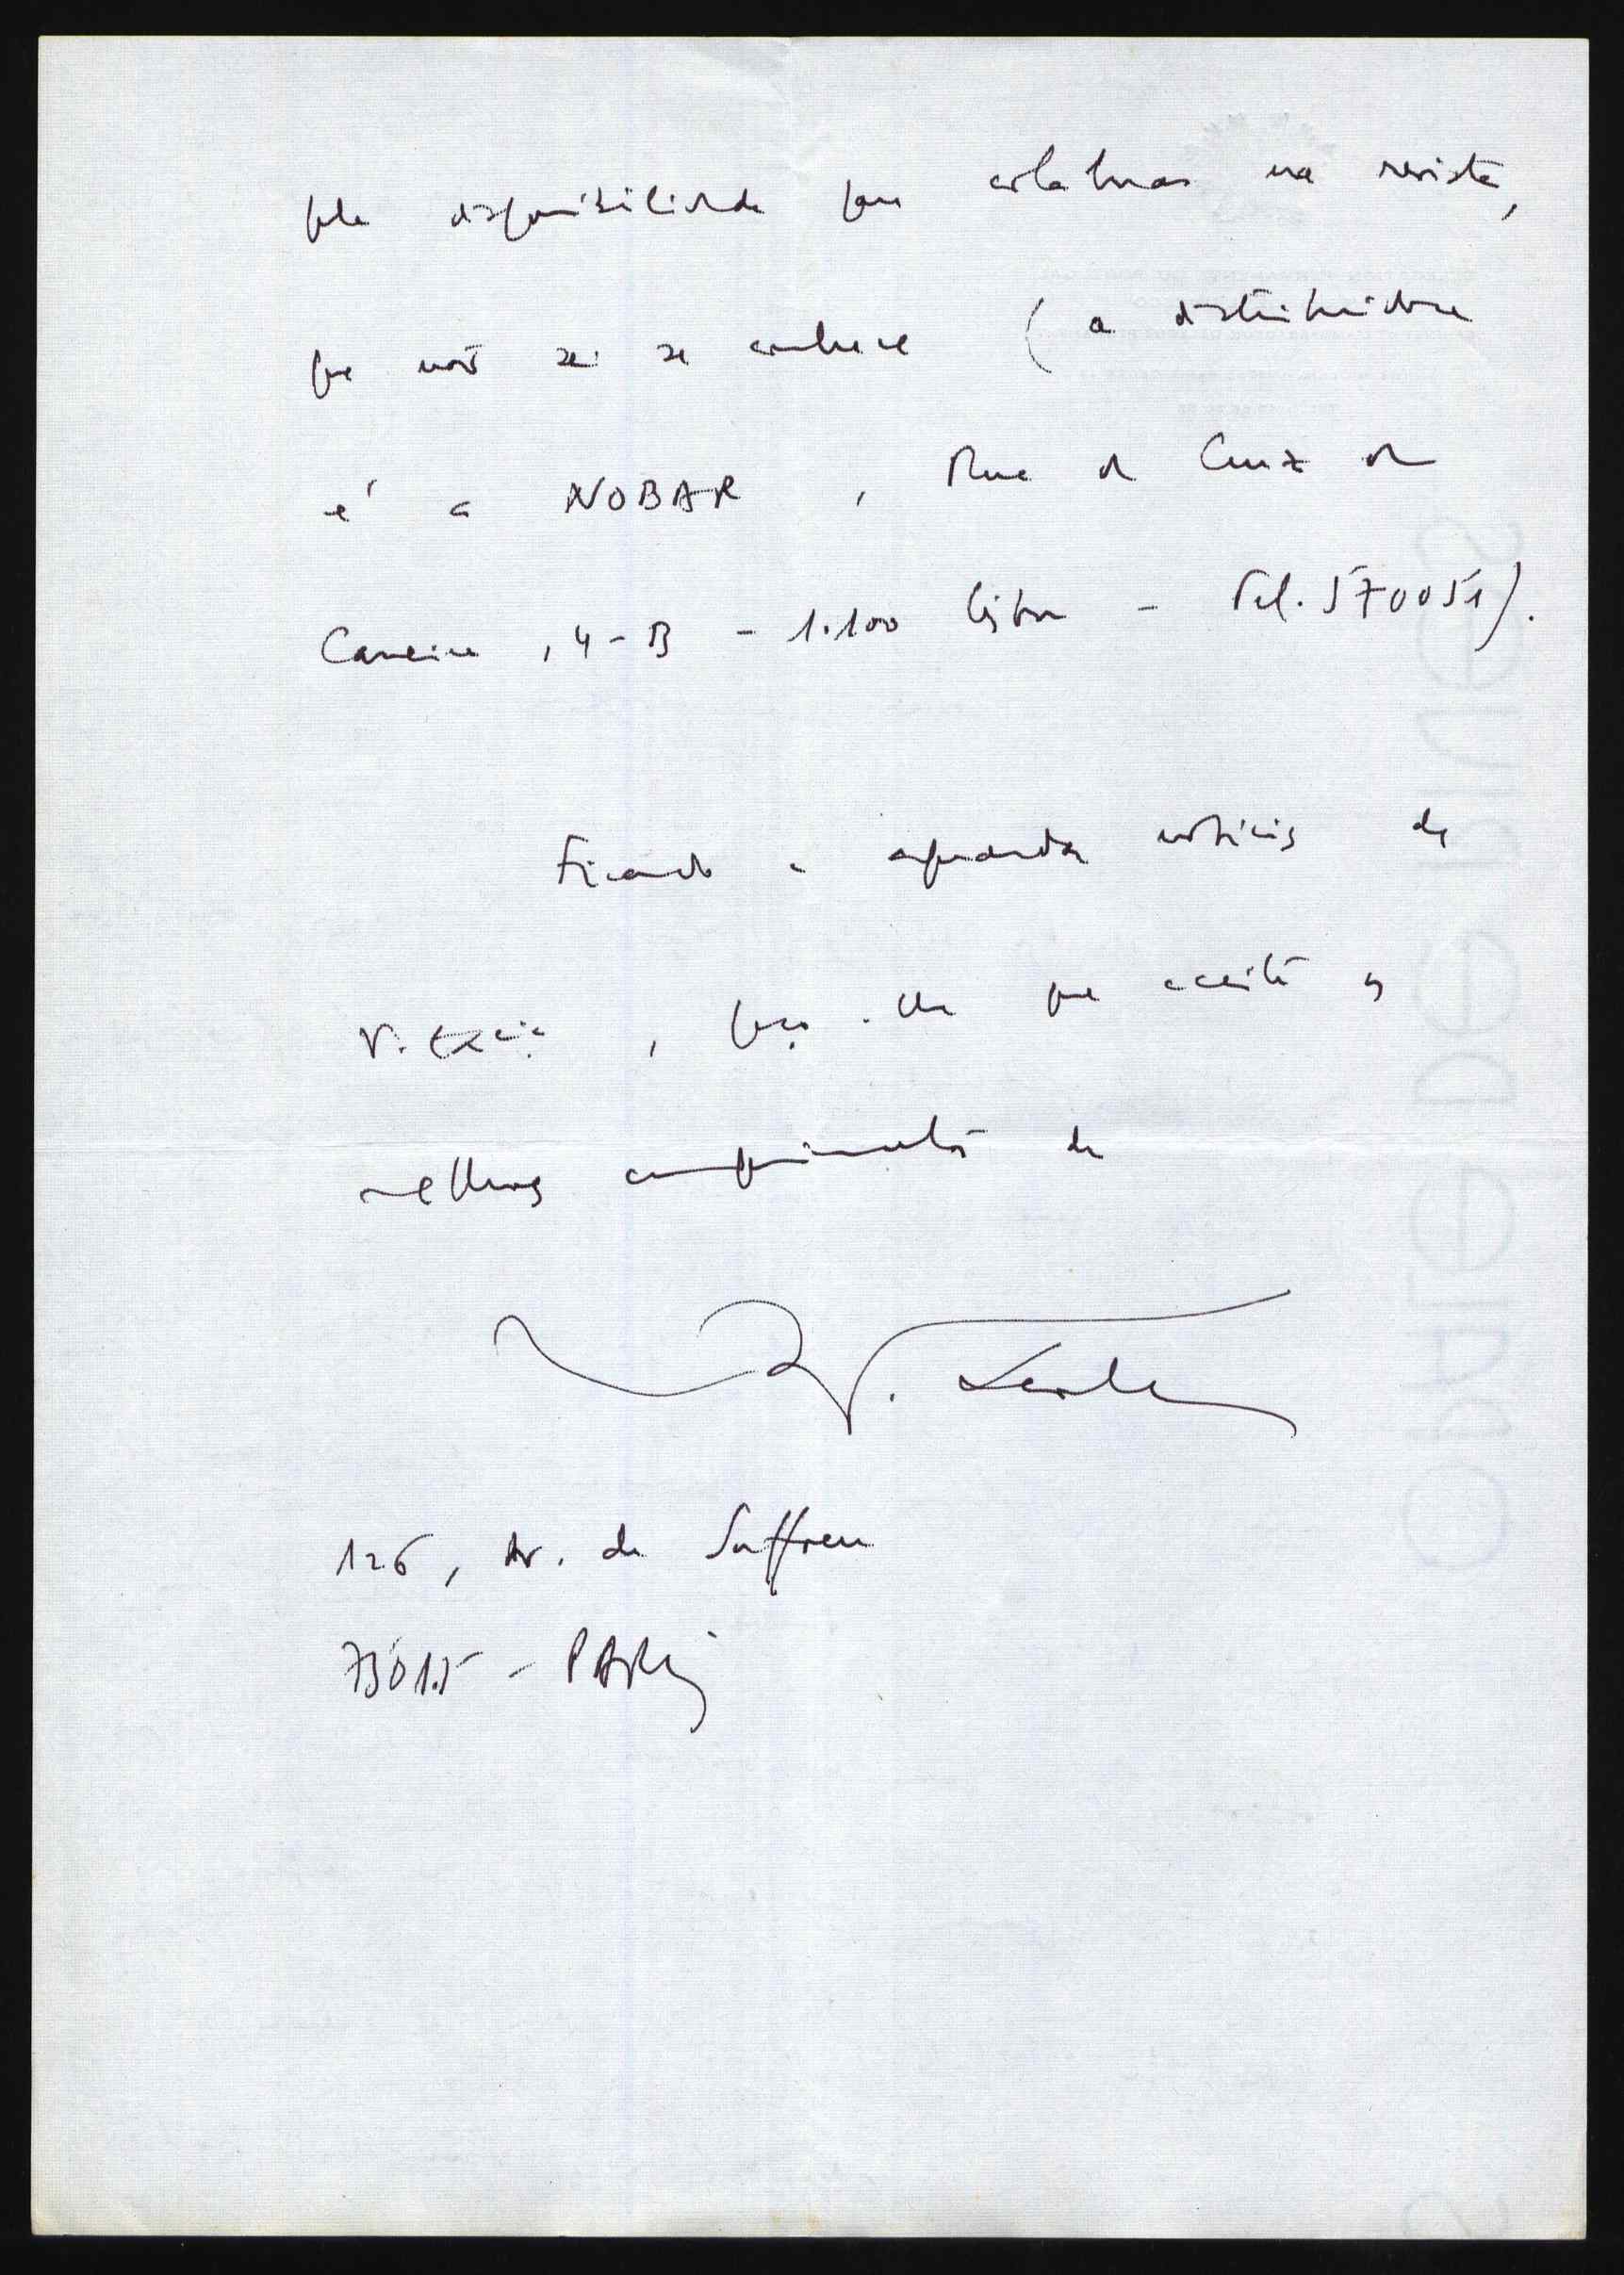 pela disponibilidade para colaborar na revista,
que não sei se conhece (a distribuidora
é a NOBAR, Rua da Cruz da
Carreira, 4-B - 1.100 Lisboa - Tel. 570051).
Ficando a aguardar notícias de
V. Excia, peço-lhe que aceite os
melhores cumprimentos de
126, Av. de Suffren
75015 - PARIS